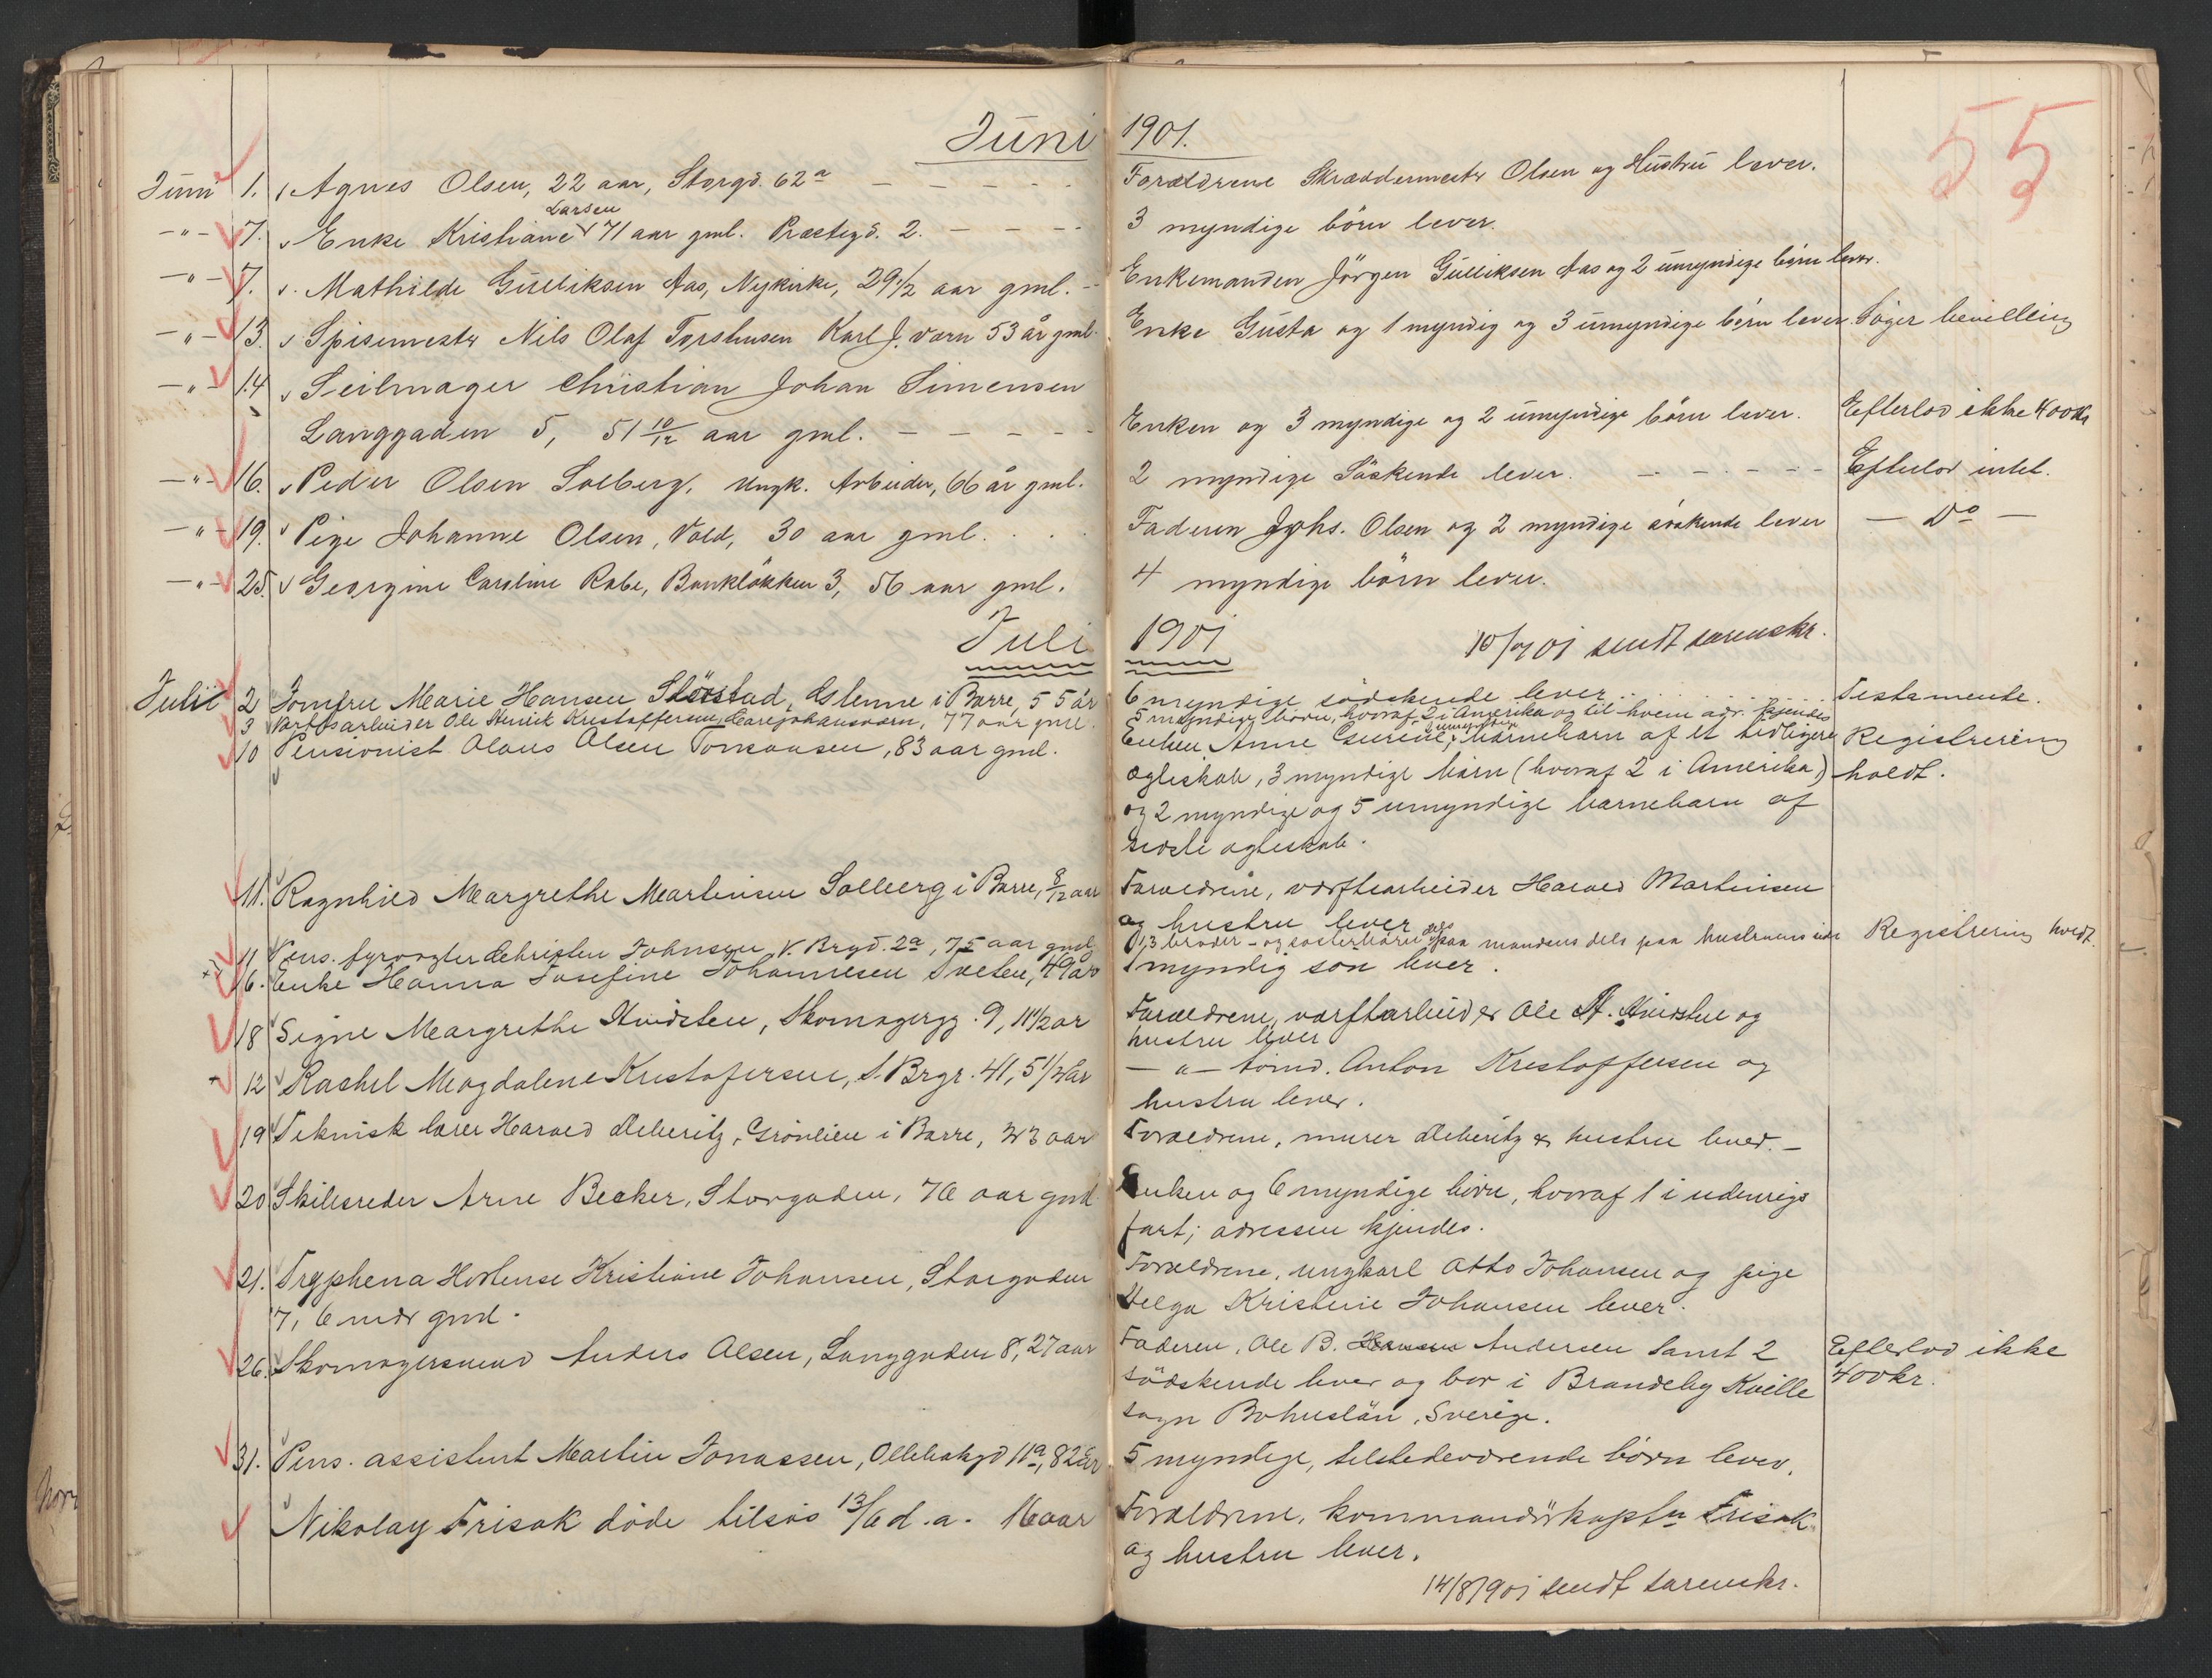 55
Juni 1901.
Juni 1. Agnes Olsen, 22 aar, Storgd. 62a — — — — — Forældrene Skræddermester Olsen og Hustru lever.
Larsen
—"— 7. Enke Kristiane 71 aar gml. Præstegd. 2. — — — — 3 myndige børn lever.
—"— 7. Mathilde Gulliksen Aas, Nykirke, 29 1/2 aar gml. — Enkemanden Jörgen Gulliksen Aas og 2 umyndige børn lever.
—"— 13. Spisemester Nils Olaf Torshusen Karl J. værn 53 år gml. Enke Gusta og 1 myndig og 3 umyndige børn lever. Söger bevilling
—"— 14 Seilmager Christian Johan Simensen
Langgaden 5, 51 10/12 aar gml. — — — — — Enken og 3 myndige og 2 umyndige börn lever. Efterlod ikke 400 Kr
—"— 16. Peder Olsen Solberg, Ungk. Arbeider, 66 år gml. 2 myndige Söskende lever. — — — — — Efterlod intet.
—"— 19. Pige Johanne Olsen, Vold, 30 aar gml. . . . Faderen Johs. Olsen og 2 myndige söskende lever — Do —
—"— 25. Georgine Caroline Rabe, Bankløkken 3, 56 aar gml. 4 myndige börn lever.
Juli 1901
10/7 01 sendt sorenskr.
Juli 2 Jomfru Marie Hansen Störstad, Aslenne i Borre, 55 år 6 myndige södskende lever . . . . . Testamente.
3 Værftsarbeider Ole Henrik Kristoffersen, Carljohansværn, 77 aar gml. 5 myndige børn, hvoraf 2 i Amerika og til hvem adr. kjendes
10 Pensionist Olaus Olsen Tonsaasen, 83 aar gml. Enken Anne Gurine, barnebarn af et tidligere Registrering
ægteskab, 3 myndige børn (hvoraf 2 i Amerika) holdt.
og 2 myndige og 5 umyndige barnebarn af
sidste ægteskab.
11. Ragnhild Margrethe Martinsen Solberg i Borre, 8/12 aar Forældrene, værftsarbeider Harald Martinsen
og hustru lever
11 Pens. fyrvogter Christen Johnsen, V. Brygd. 2a, 75 aar gml. 13 broder- og søsterbørn dels paa mandens dels paa hustruens side Registrering holdt.
16. Enke Hanna Josefine Johannesen Sveten, 49 år 1 myndig søn lever.
18 Signe Margrethe Kvidsten, Skomagergg. 9, 11 1/2 ar Forældrene, værftarbeider Ole A. Kvisten og
hustru lever
12 Rachel Magdalene Kristofersen, S. Brgr. 41, 5 1/2 år — " — tömd. Anton Kristoffersen og
hustru lever.
19 Teknisk lærer Harald Deberitz, Grönlien i Borre, 33 aar Forældrene, murer Deberitz & hustru lever. —
20 Skibsreder Arne Becker, Storgaden, 76 aar gml Enken og 6 myndige børn, hvoraf 1 i udenrigs
fart; adressen kjendes.
21. Tryphena Hortense Kristiane Johansen, Storgaden Forældrene, ungkarl Otto Johansen og pige
7, 6 mdr gml. Helga Kristine Johansen lever.
26. Skomagersvend Anders Olsen, Langgaden 8, 27 aar Faderen, Ole B. Hansen Andersen samt 2 Efterlod ikke
södskende lever og bor i Brandeby Kville 400 kr.
sogn Bohuslän, Sverige.
31. Pens. assistent Martin Jonassen, Ollebakgd 11a, 82 år 5 myndige, tilstedeværende børn lever.
Nikolay Frisak døde tilsjøs 13/6 d.a. 16 aar Forældrene, kommandörkaptn Frisak
og hustru lever.
14/8 1901 sendt sorenskr.